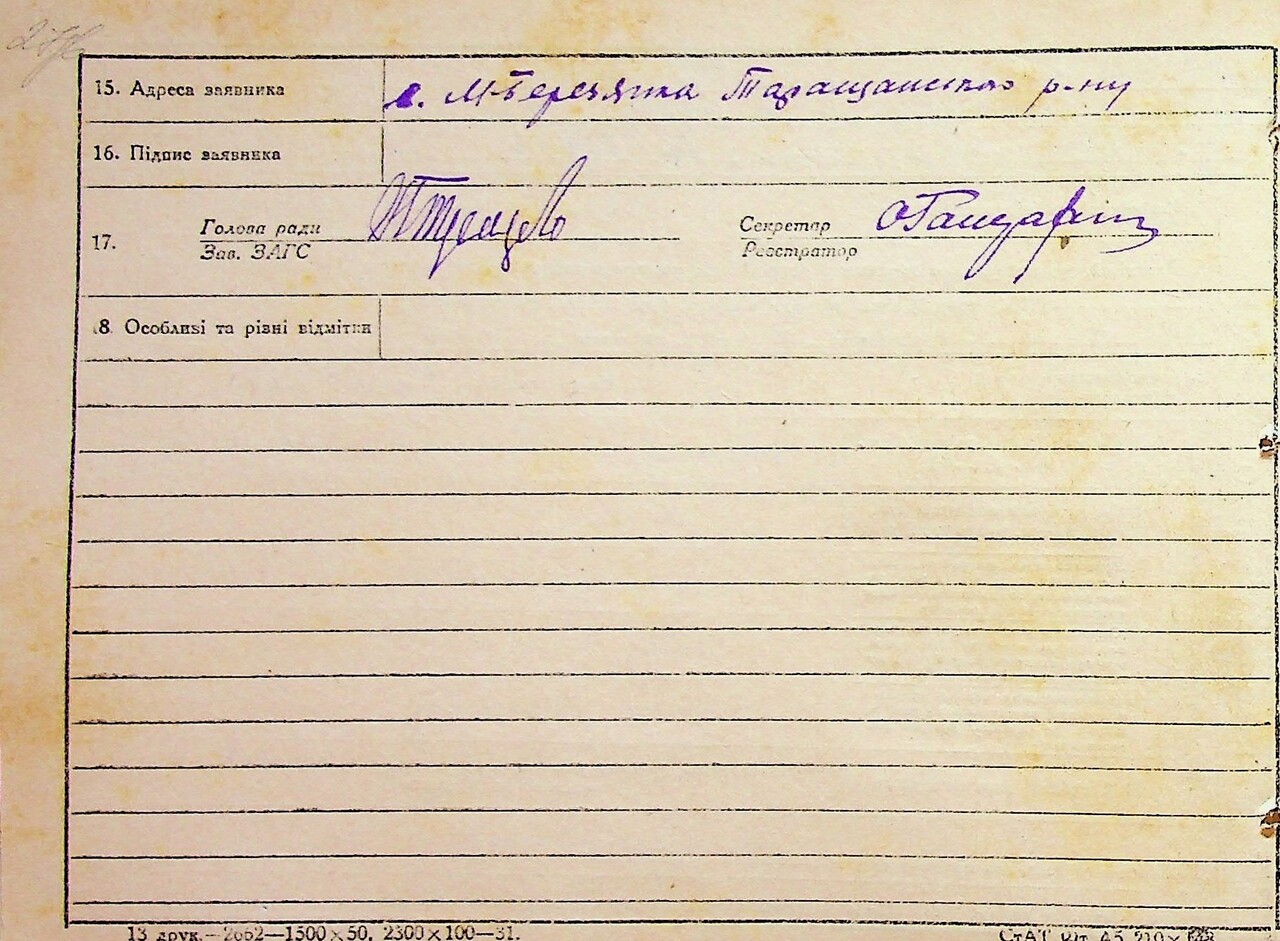 15. Адреса заявника
с. М-Березянка Таращанского р-ну
16. Підпис заявника
17.
Голова ради
Зав. ЗАГС
Секретар
Реєстратор
8 Особливі та різні відмітки
13 друк.—2662—1500×50, 2300×100—31.
СтАТ